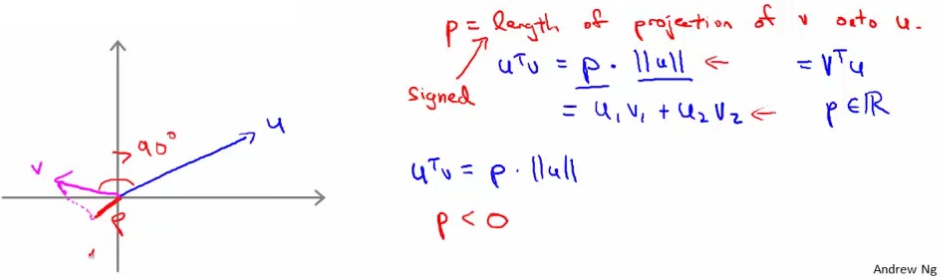 p = length of projection of v onto u.
signed
uᵀv = p · ||u|| ← = vᵀu
= u₁v₁ + u₂v₂ ← p ∈ ℝ
u
> 90°
v
p
uᵀv = p · ||u||
p < 0
Andrew Ng